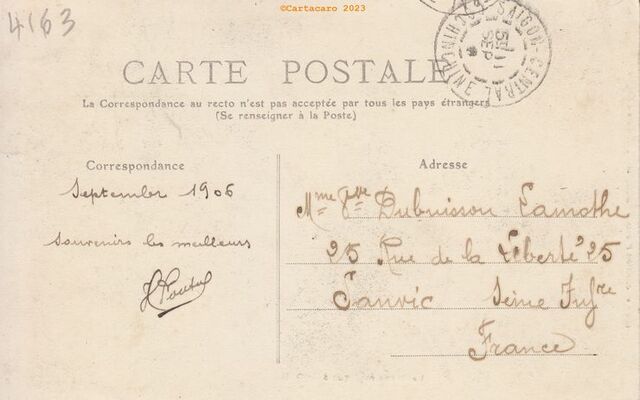 ©Cartacaro 2023
4163
SAIGON-CENTRAL
COCHINCHINE
11
SEP
CARTE POSTALE
La Correspondance au recto n'est pas acceptée par tous les pays étrangers
(Se renseigner à la Poste)
Correspondance
September 1906
Souvenirs les meilleurs
Adresse
Mme Vve Dubuisson Lamothe
25 Rue de la Liberté 25
Sanvic Seine Infre
France